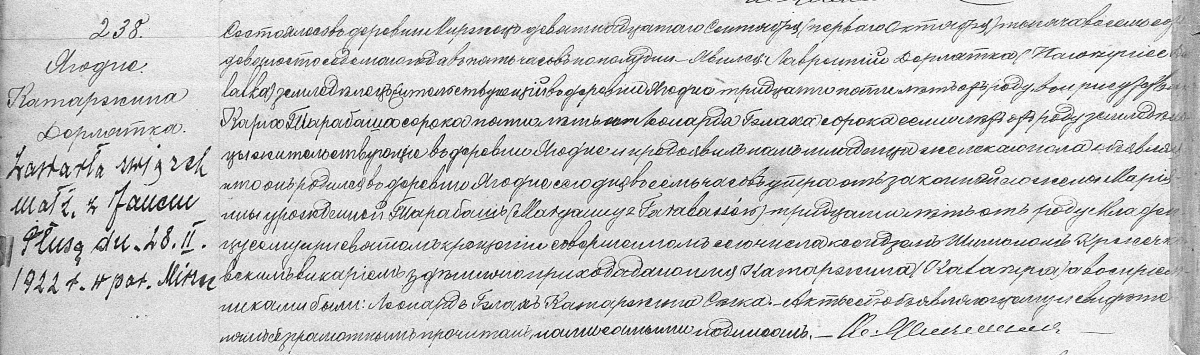 238.
Ягодне.
Катаржина
Дорлятка.
Zawarła związek
małż. z Janem
Plusą dn. 28.II.
1922 r. w par.
Состоялось въ деревни девятнадцатаго Сентября (перваго Октября) тысяча восемь сотъ
девяносто седьмаго года въ пять часовъ по полудни. Явился Лаврентій Дорлятка
земледѣлецъ жительствующій въ деревни Ягодне тридцати пяти лѣтъ отъ роду въ присутствіи
Кароля Тарабаша сорока пяти лѣтъ и Леонарда Гэлаха сорока семи лѣтъ отъ роду земледѣль
цы жительствующіе въ деревни Ягодне и предъявилъ намъ младенца женскаго пола объявляя
что онъ родился въ деревни Ягодне сего дня въ восемь часовъ утра отъ законной его жены Марі
анны урожденной Тарабашъ тридцати лѣтъ отъ роду. Младен
цу сему при святомъ крещеніи совершенномъ сего числа ксендзомъ Шимономъ
викаріемъ здѣшняго прихода дано имя Катаржина (Katarzyna) а воспріем
никами были: Леонардъ Гэлахъ и Катаржина. Актъ сей объявляющему и свидѣте
лямъ неграмотнымъ прочитанъ, нами самыми подписанъ.